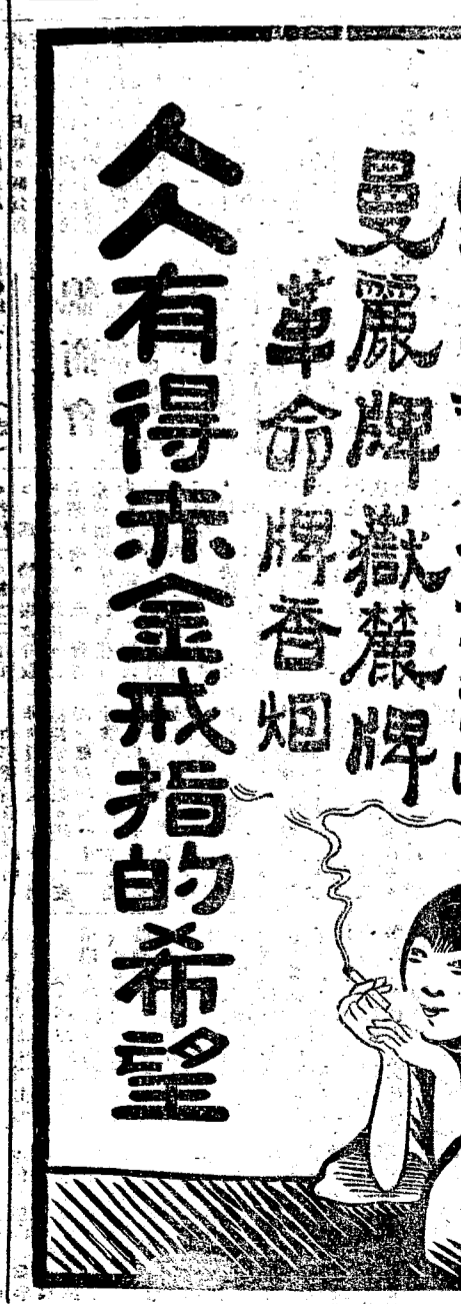 曼麗牌嶽麓牌
革命牌香烟
人人有得赤金戒指的希望